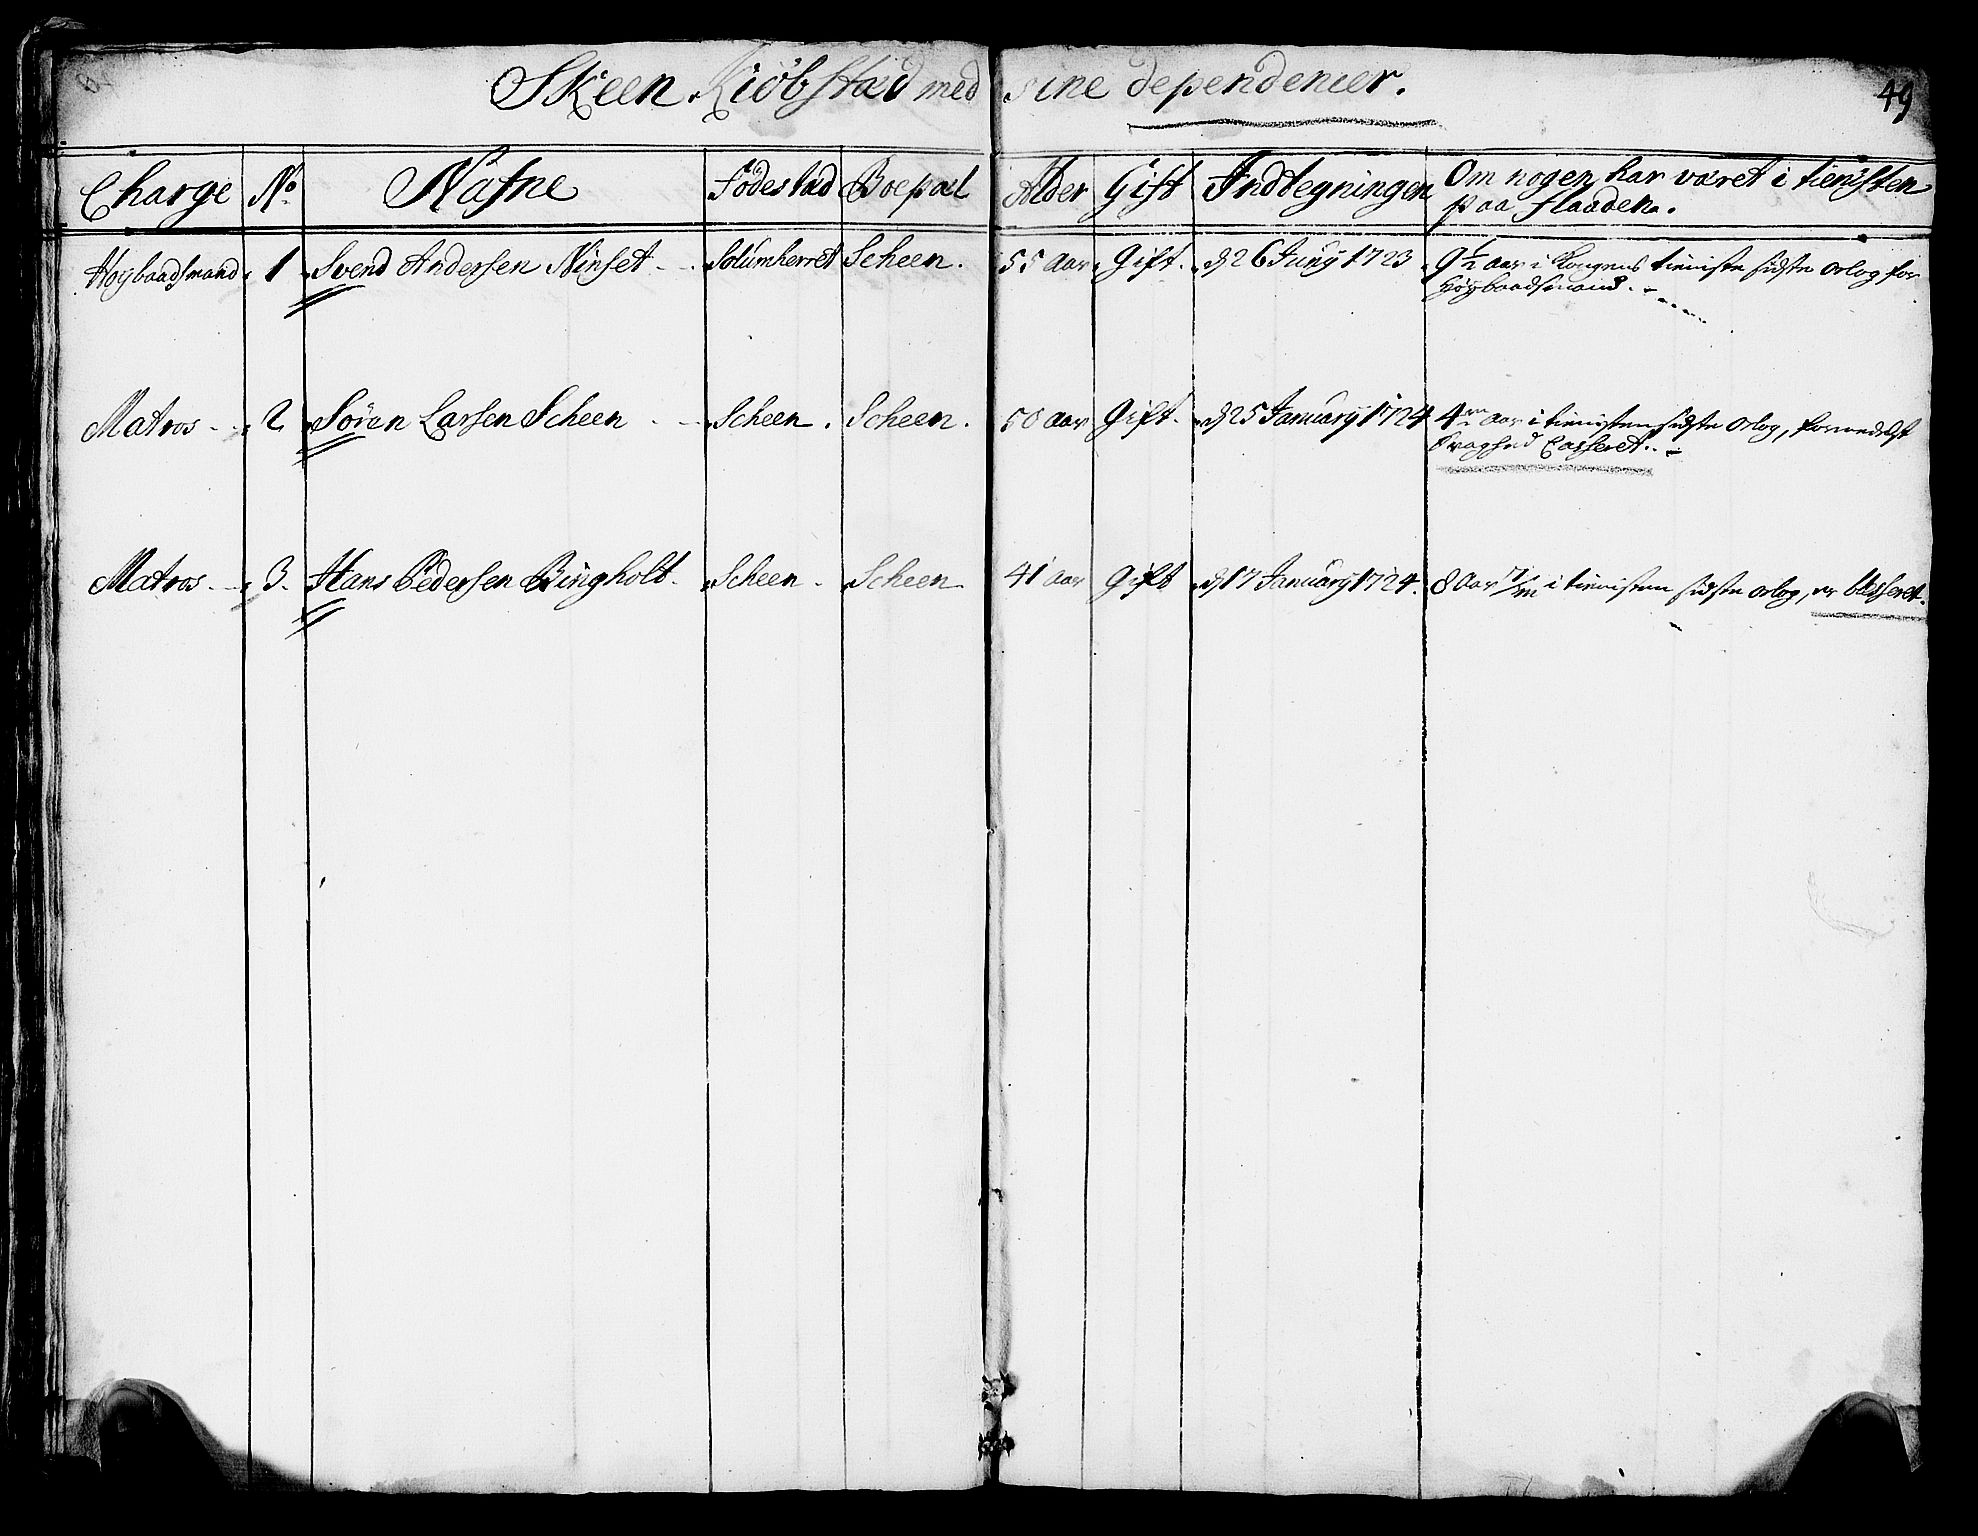 Skeen Kiöbstæd med sine dependencier.
49
Charge No Nafne Födestæd Boepæl Alder Gift Indtegningen Om nogen har været i tienisten
paa flaaden.
Hoÿbaadsmand 1 Svend Andersen Ninset Solumherret Scheen. 55 aar Gift. d 26 Junÿ 1723 9½ aar i Kongens tieniste sidste orlog for
Höÿbaadsmand.
Matros 2 Sören Larsen Scheen Scheen. Scheen. 50 aar Gift. d 25 Januarÿ 1724 4 aar i tienisten sidste orlog, formedelst
Svaghed Casseret.
Matros 3. Hans Pedersen Bingholt. Scheen. Scheen 41 aar Gift d 17 Januarÿ 1724. 8 aar 7/m i tienisten sidste orlog, er blesseret.